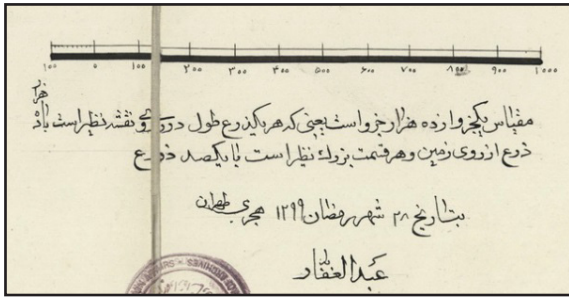 ۱۰۰ ۰ ۱۰۰ ۲۰۰ ۳۰۰ ۴۰۰ ۵۰۰ ۶۰۰ ۷۰۰ ۸۰۰ ۹۰۰ ۱۰۰۰
مقیاس یکجزو از ده هزار جزو است یعنی که هر یکذرع طول در روی نقشه نظیر است با ده هزار
ذرع از روی زمین و هر قسمت بزرك نظیر است با یکصد ذرع
بتاریخ ۲۸ شهر رمضان ۱۲۹۹ هجری طهران
عبدالغفار